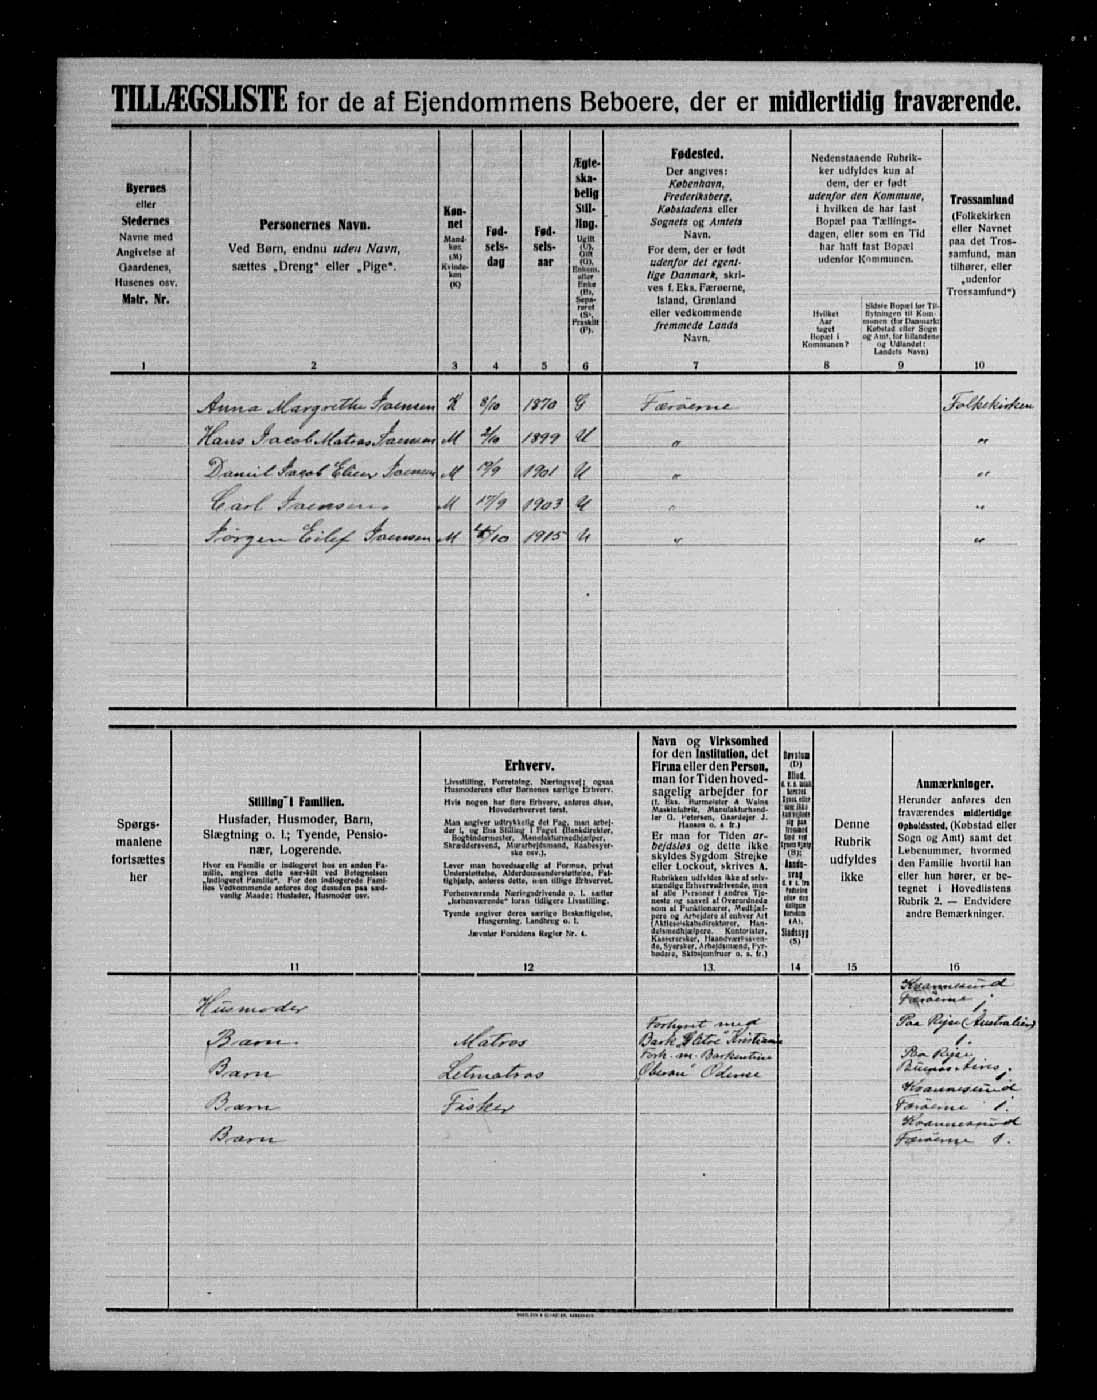 TILLÆGSLISTE for de af Ejendommens Beboere, der er midlertidig fraværende.
Byernes
eller
Stedernes
Navne med
Angivelse af
Gaardenes,
Husenes osv.
Matr. Nr.
1
Personernes Navn.
Ved Børn, endnu uden Navn,
sættes „Dreng“ eller „Pige“.
2
Køn-
net
Mand-
køn
(M)
Kvinde-
køn
(K)
3
Fød-
sels-
dag
4
Fød-
sels-
aar
5
Ægte-
ska-
belig
Stil-
ling.
Ugift
(U),
Gift
(G),
Enkem.
eller
Enke
(E),
Sepa-
reret
(S),
Fraskilt
(F).
6
Fødested.
Der angives:
København,
Frederiksberg,
Købstadens eller
Sognets og Amtets
Navn.
For dem, der er født
udenfor det egent-
lige Danmark, skri-
ves f. Eks. Færøerne,
Island, Grønland
eller vedkommende
fremmede Lands
Navn.
7
Nedenstaaende Rubrik-
ker udfyldes kun af
dem, der er født
udenfor den Kommune,
i hvilken de har fast
Bopæl paa Tællings-
dagen, eller som en Tid
har haft fast Bopæl
udenfor Kommunen.
Hvilket
Aar
taget
Bopæl i
Kommunen?
8
Sidste Bopæl før Til-
flytningen til Kom-
munen (for Danmark:
Købstad eller Sogn
og Amt, for Bilandene
og Udlandet:
Landets Navn)
9
Trossamfund
(Folkekirken
eller Navnet
paa det Tros-
samfund, man
tilhører, eller
„udenfor
Trossamfund“)
10
Anna Margrethe Joensen K 8/10 1870 G Færøerne Folkekirken
Hans Jacob Matras Joensen M 2/10 1899 U „ „
Daniel Jacob Elieser Joensen M 19/9 1901 U „ „
Carl Joensen M 17/9 1903 U „ „
Jørgen Eilef Joensen M /10 1915 U „ „
Spørgs-
maalene
fortsættes
her
Stilling i Familien.
Husfader, Husmoder, Barn,
Slægtning o. l.; Tyende, Pensio-
nær, Logerende.
Hvor en Familie er indlogeret hos en anden Fa-
milie, angives dette særskilt ved Betegnelsen
„Indlogeret Familie“. For den indlogerede Fami-
lies Vedkommende anføres dog desuden paa sæd-
vanlig Maade: Husfader, Husmoder osv.
11
Erhverv.
Livsstilling, Forretning, Næringsvej; ogsaa
Husmoderens eller Børnenes særlige Erhverv.
Hvis nogen har flere Erhverv, anføres disse,
Hovederhvervet først.
Man angiver udtrykkelig det Fag, man arbej-
der i, og Ens Stilling i Faget (Bankdirektør,
Bogbindermester, Manufakturmedhjælper,
Skræddersvend, Murarbejdsmand, Kaabesyer-
ske osv.).
Lever man hovedsagelig af Formue, privat
Understøttelse, Alderdomsunderstøttelse, Fat-
tighjælp, anføres dette, men tillige Erhvervet.
Forhenværende Næringsdrivende o. l. sætter
„forhenværende“ foran tidligere Livsstilling.
Tyende angiver deres særlige Beskæftigelse,
Husgerning, Landbrug o. l.
Jævnfør Forsidens Regler Nr. 4.
12
Navn og Virksomhed
for den Institution, det
Firma eller den Person,
man for Tiden hoved-
sagelig arbejder for
(f. Eks. Burmeister & Wains
Maskinfabrik, Manufakturhand-
ler G. Petersen, Gaardejer J.
Hansen o. s. fr.)
Er man for Tiden ar-
bejdsløs og dette ikke
skyldes Sygdom Strejke
eller Lockout, skrives A.
Rubrikken udfyldes ikke af selv-
stændige Erhvervsdrivende, men
af alle Personer i andres Tje-
neste og saavel af Overordnede
som af Funktionærer, Medhjæl-
pere og Arbejdere af enhver Art
(Aktieselskabsdirektører, Han-
delsmedhjælpere, Kontorister,
Kasserersker, Haandværkssven-
de, Syersker, Arbejdsmænd, Fyr-
bødere, Skibsjomfruer o. s. fr.)
13.
Døvstum
(D)
Blind,
(B);
Aands-
svag
(A).
Sindssyg
(S)
14
Denne
Rubrik
udfyldes
ikke
15
Anmærkninger.
Herunder anføres den
fraværendes midlertidige
Opholdssted, (Købstad eller
Sogn og Amt) samt det
Løbenummer, hvormed
den Familie hvortil han
eller hun hører, er be-
tegnet i Hovedlistens
Rubrik 2. — Endvidere
andre Bemærkninger.
16
Husmoder Kvannesund
Færøerne 1.
Barn Matros Forhyret med
Bark Kristiania Paa Rejse (Australien)
1.
Barn Letmatros Forh. m. Barkentine
Oberon" Odense Paa Rejse
Buenos Aires 1.
Barn Fisker Kvannesund
Færøerne 1.
Barn Kvannesund
Færøerne 1.